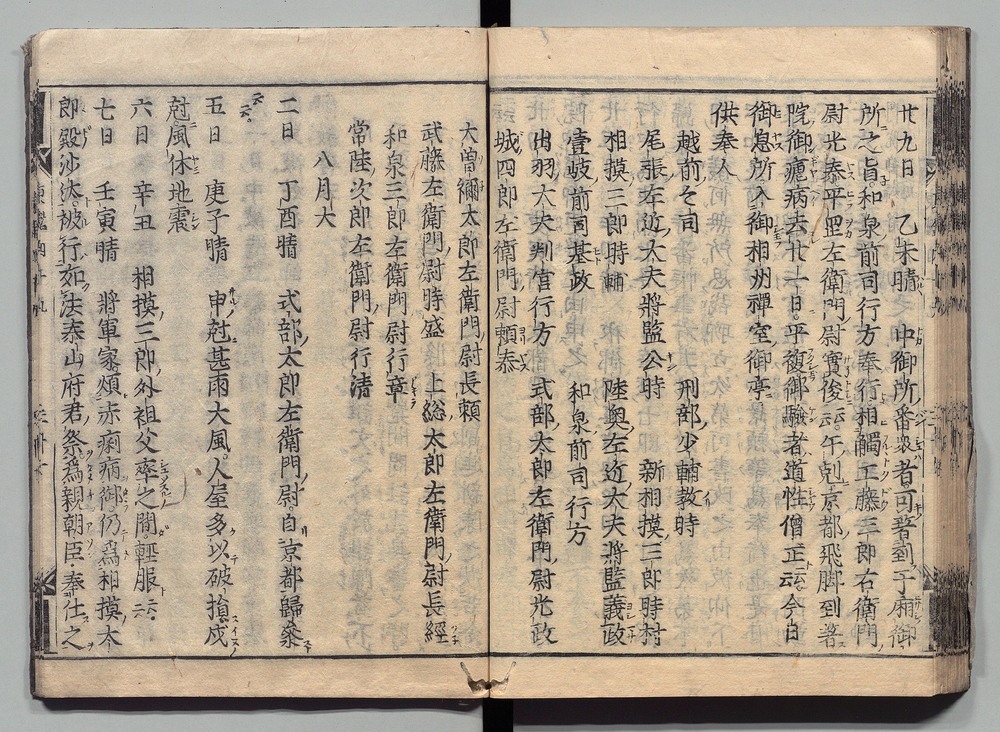 廿九日 乙未晴 中御所番衆者可著到于廂御
所之旨和泉前司行方奉行相觸工藤三郎右衛門
尉光泰平里左衛門尉實俊云云午剋京都飛脚到著
院御瘧病去廿一日平復御驗者道性僧正云云今日
御息所入御相州禪室御亭
供奉人
越前々司 刑部少輔教時
尾張左近大夫將監公時 新相摸三郎時村
相摸三郎時輔 陸奥左近大夫將監義政
壹岐前司基政 和泉前司行方
出羽大夫判官行方 式部太郎左衛門尉光政
城四郎左衛門尉頼泰
大曽禰太郎左衛門尉長頼
武藤左衛門尉時盛 上総太郎左衛門尉長經
和泉三郎左衛門尉行章
常陸次郎左衛門尉行清
八月大
二日 丁酉晴 式部太郎左衛門尉自京都歸參
云云
五日 庚子晴 申剋甚雨大風人屋多以破損戌
剋風休地震
六日 辛丑 相摸三郎外祖父卒之間輕服云云
七日 壬寅晴 將軍家頗赤痢病御仍爲相摸太
郎殿沙汰被行如法泰山府君祭爲親朝臣奉仕之